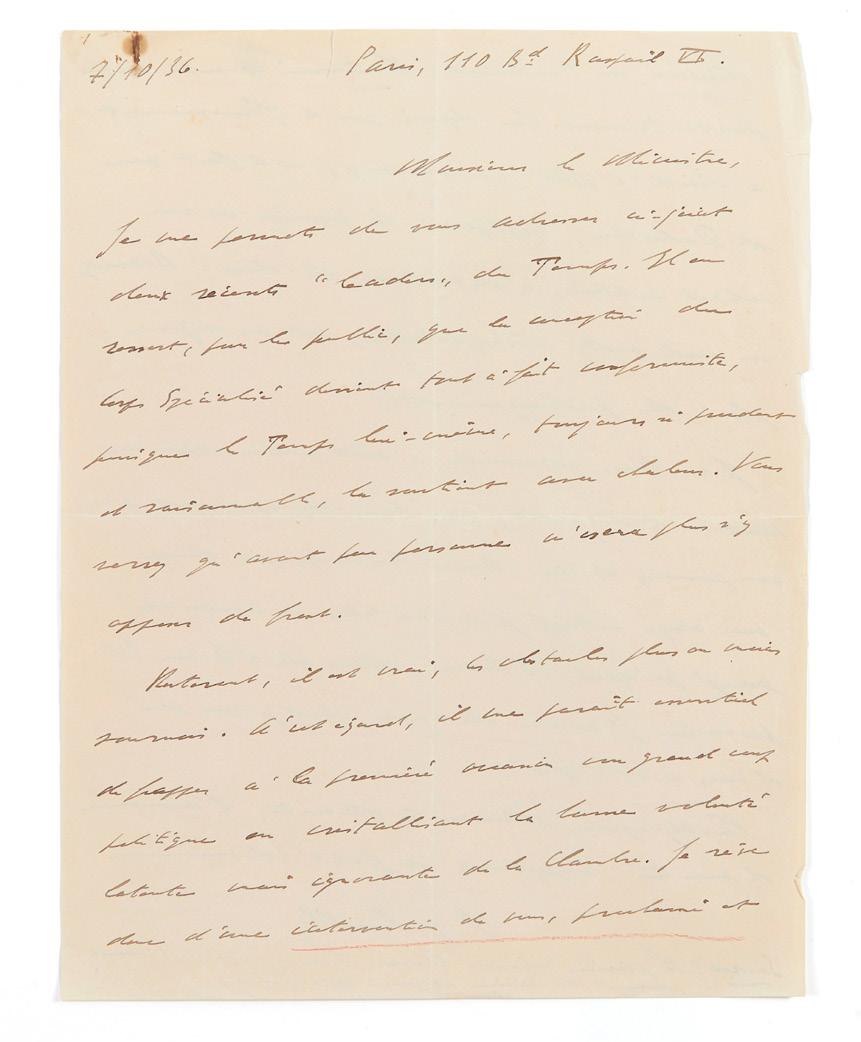 7/10/36.
Paris, 110 Bd Raspail VI.
Monsieur le Ministre,
Je me permets de vous adresser ci-joint
deux récents "leaders" du Temps. Il en
ressort, pour le public, que la conception du
Corps Spécialisé devient tout à fait conformiste,
puisque le Temps lui-même, toujours si prudent
et raisonnable, la soutient avec chaleur. Vous
verrez qu'avant peu personne n'osera plus s'y
opposer de front.
Resteront, il est vrai, les obstacles plus ou moins
sournois. A cet égard, il me paraît essentiel
de frapper à la première occasion un grand coup
politique en cristallisant la bonne volonté
latente mais ignorante de la Chambre. Je rêve
donc d'une intervention de vous, proclamé et